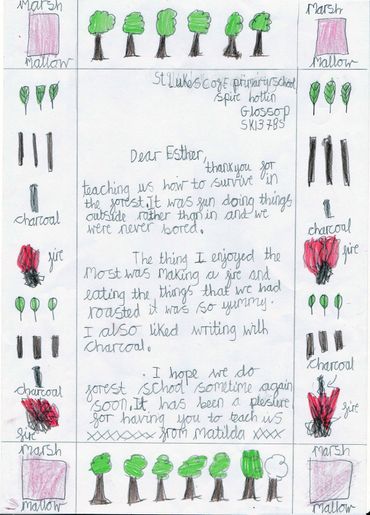 Marsh
Mallow
Marsh
Mallow
St Lukes C of E primary school
Glossop
SK13 7BS
Dear Esther,
thankyou for
teaching us how to survive in
the forest. It was fun doing things
outside rather than in and we
were never bored.
The thing I enjoyed the
most was making a fire and
eating the things that we had
roasted it was so yummy.
I also liked writing with
charcoal.
I hope we do
forest school sometime again
soon. It has been a plesure
for having you to teach us
xxxxxxxx from Matilda xxxx
charcoal
fire
charcoal
fire
charcoal
fire
charcoal
fire
Marsh
Mallow
Marsh
Mallow